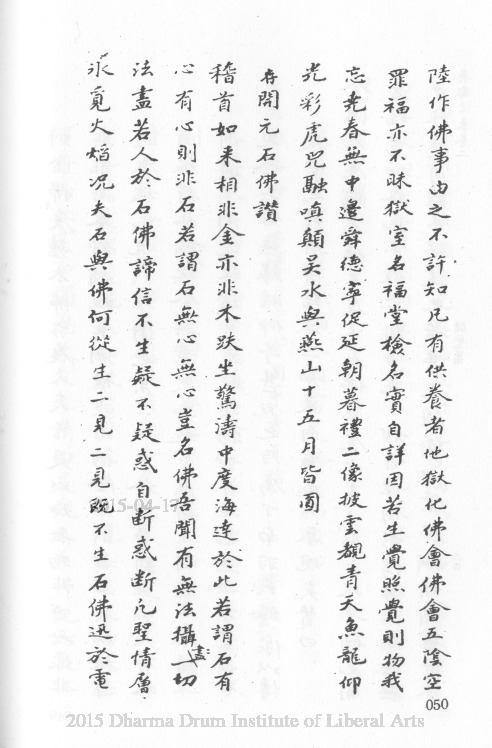 陸作佛事由之不許知凡有供養者地獄化佛會佛會五陰空
罪福亦不昧獄室名福堂檢名實自詳因若生覺照覺則物我
忘堯春無中邊舜德寧促延朝暮禮二像披雲覩青天魚龍仰
光彩虎兕融嗔顛吳水與燕山十五月皆圓
存開元石佛讃
稽首如来相非金亦非木趺坐驚濤中度海達於此若謂石有
心有心則非石若謂石無心無心豈名佛吾聞有無法攝盡一切
法盡若人於石佛諦信不生疑不疑惑自断惑断凡聖情層
氷覓火焰况夫石與佛何從生二見二見既不生石佛迅於電
050
2015-04-17
2015 Dharma Drum Institute of Liberal Arts